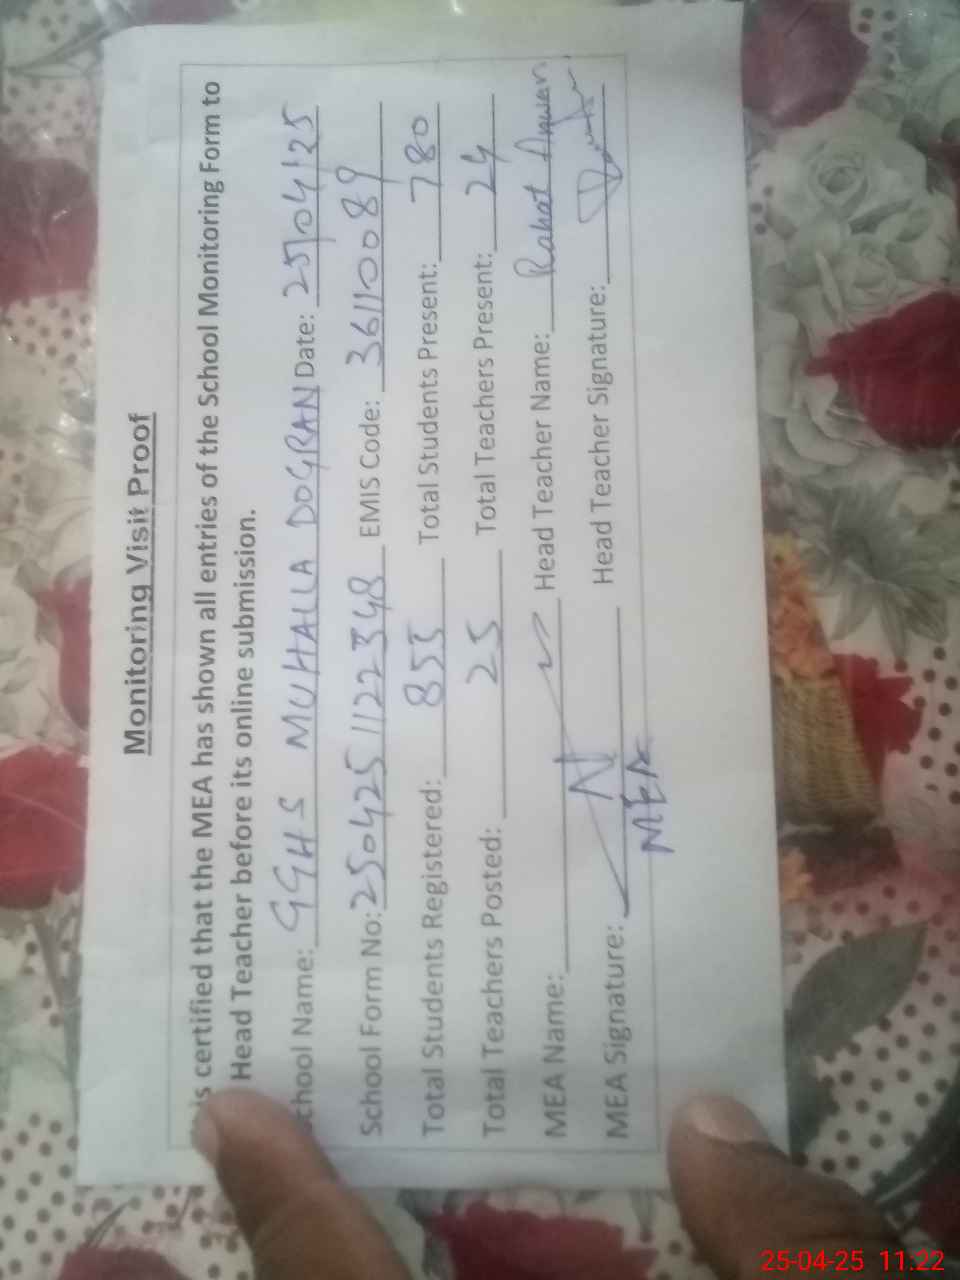 Monitoring Visit Proof
is certified that the MEA has shown all entries of the School Monitoring Form to
Head Teacher before its online submission.
School Name: GGHS MUHALLA DOGRAN Date: 25/04/25
School Form No: 2504251122348 EMIS Code: 36110089
Total Students Registered: 855 Total Students Present: 780
Total Teachers Posted: 25 Total Teachers Present: 24
MEA Name: Head Teacher Name: Rahat Anwen
MEA Signature: Head Teacher Signature:
MEA
25-04-25 11:22